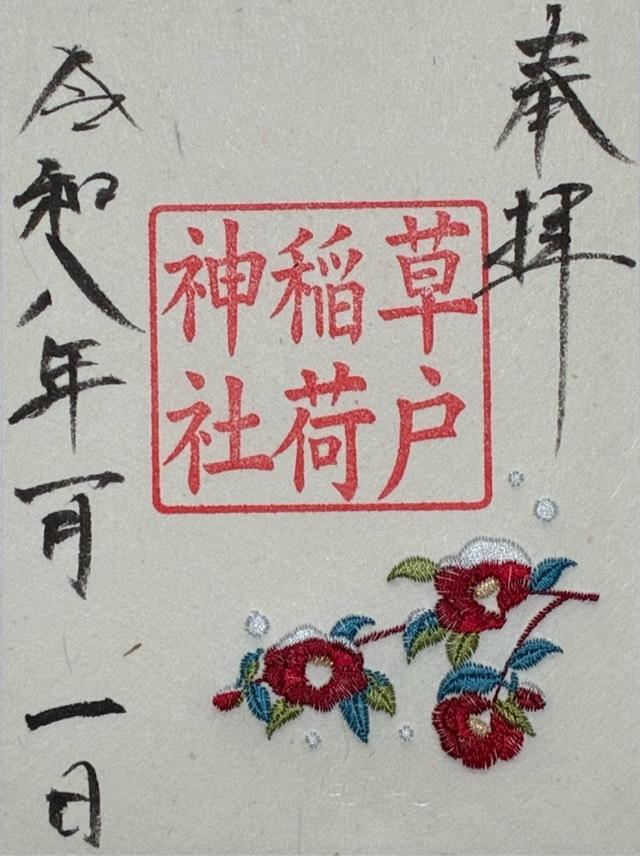 奉拝
草戸
稲荷
神社
令和八年一月一日